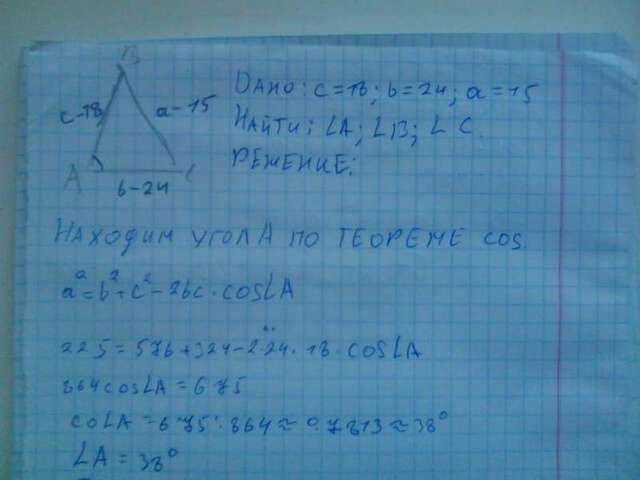 B
c-18
a-15
A
C
b-24
Дано: c=18; b=24; a=15
Найти: ∠A; ∠B; ∠C.
Решение:
Находим угол A по теореме cos.
a²=b²+c²-2bc·cos∠A
225=576+324-2·24·18·cos∠A
864cos∠A=675
co∠A=675:864≈0.7813≈38°
∠A=38°